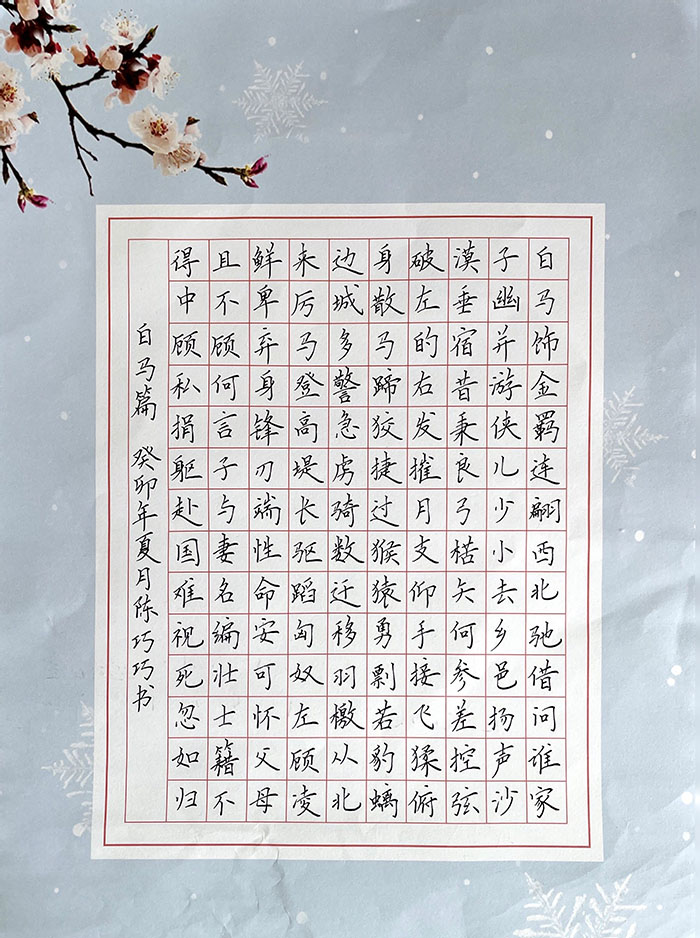 白马饰金羁连翩西北驰借问谁家
子幽并游侠儿少小去乡邑扬声沙
漠垂宿昔秉良弓楛矢何参差控弦
破左的右发摧月支仰手接飞猱俯
身散马蹄狡捷过猴猿勇剽若豹螭
边城多警急虏骑数迁移羽檄从北
来厉马登高堤长驱蹈匈奴左顾凌
鲜卑弃身锋刃端性命安可怀父母
且不顾何言子与妻名编壮士籍不
得中顾私捐躯赴国难视死忽如归
白马篇 癸卯年夏月陈巧巧书